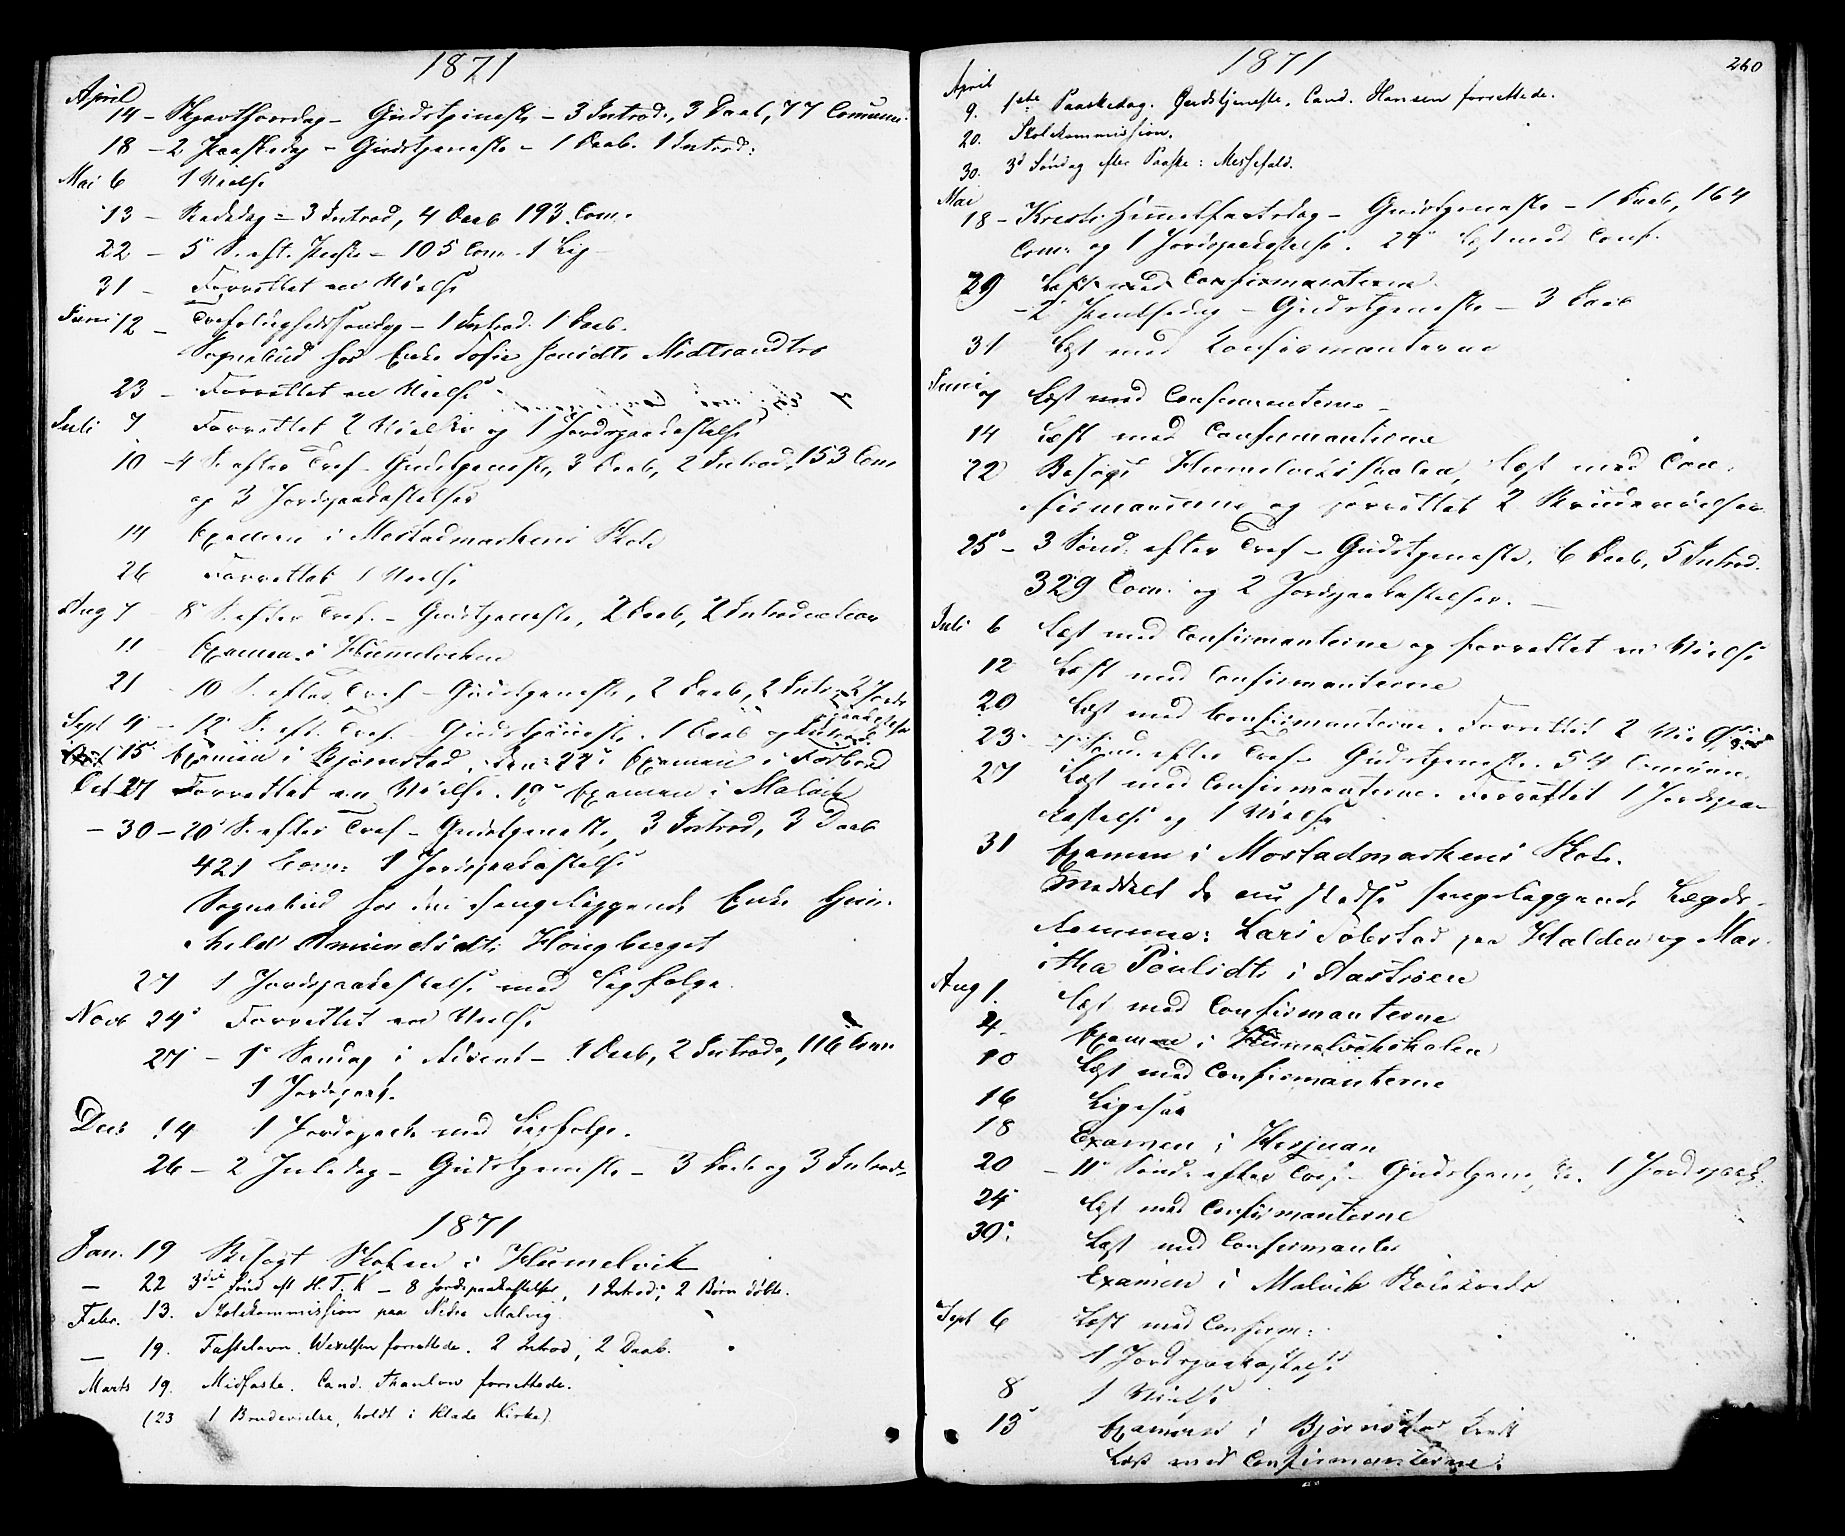 1871
April
14 - Skjærthorsdag - Gudstjeneste - 3 Introd., 3 Daab, 77 Comun:
18 - 2 Paaskedag - Gudstjeneste - 1 Daab. 1 Introd:
Mai 6 1 Vielse
13 - Bededag - 3 Introd, 4 Daab 193 Com.
22 - 5 S. eft. Paaske - 105 Com. 1 Lig
31 - Forrettet en Vielse
Juni 12 - Trefoldighedssøndag - 1 Introd. 1 Daab.
Sognebud hos Enke Sofie Midtsandtrø
23 - Forrettet en Vielse
Juli 7 Forrettet 2 Vielser og 1 Jordspaakastelse
10 - 4 S. efter Tref - Gudstjeneste, 3 Daab, 2 Introd, 153 Com
og 3 Jordspaakastelser
14 Examen i Mostadmarkens Skole
26 Forrettet 1 Vielse
Aug 7 - 8 S. efter Tref. - Gudstjeneste, 2 Daab, 2 Introduction
11 Examen i Hummelviken
21 - 10 S. efter Tref - Gudstjeneste, 2 Daab, 2 Intr 2 Jords
paakastelse
Sept 4 - 12 S. eft. Tref. Gudstjeneste. 1 Daab og Introd
15 Examen i Bjørnstad, den 22 Examen i Forbord
Oct 27 Forrettet en Vielse. 19 Examen i Malvik
- 30 - 20 S. efter Tref - Gudstjeneste, 3 Introd, 3 Daab
421 Com: 1 Jordspaakastelse
Sognebud hos den sengeliggende Enke Gun-
hild Amundsdt: Høugberget
27 1 Jordspaakastelse med Ligfølge.
Novb 24 Forrettet en Vielse
27 - 1 Søndag i Advent - 1 Daab, 2 Introd, 116 Com
1 Jordspaak.
Decb 14 1 Jordspaak med Ligfølge.
26 - 2 Juledag - Gudstjeneste - 3 Daab og 3 Introd
1871
Jan. 19 Besøgt Skolen i Hummelvik
— 22 3die Sønd eft H. T. K - 8 Jordspaakastelser, 1 Introd; 2 Børn døbte.
Febr. 13. Skolekommission paa Nedre Malvig.
— 19. Fastelavn. Wexelsen forrettede. 2 Introd, 2 Daab.
Marts 19. Midfaste. Cand. Thaulow forrettede.
(23 1 Brudevielse, holdt i Klade Kirke)
1871
260
April
9. 1ste Paaskedag. Gudstjeneste. Cand. Hansen forrettede.
20. Skolekommission.
30. 3d Søndag efter Paaske: Messefald.
Mai
18 - Kristi Himmelfartsdag - Gudstjeneste - 1 Daab, 164
Com: og 1 Jordspaakastelse. 24 Læst med Conf.
29 Læst med Confirmanterne
- 2 Pintsedag - Gudstjeneste - 3 Daab
31 Læst med Konfirmanterne
Juni 7 Læst med Confirmanterne
14 Læst med Confirmantierne
22 Besøgt Hummelvikskolen, læst med Con-
firmanterne og forrettet 2 Brudevielser
25 - 3 Sønd. efter Tref - Gudstjeneste, 6 Daab, 5 Introd.
329 Com. og 2 Jordspaakastelser.
Juli 6 Læst med Confirmanterne og forrettet en Vielse
12 Læst med Confirmanterne
20 Læst med Confirmanterne. Forrettet 2 Vielser
23 - 7 Sønd. efter Tref - Gudstjeneste. 54 Comun.
27 Læst med Confirmanterne. Forrettet 1 Jordspaa-
kastelse og 1 Vielse
31 Examen i Mostadmarkens Skole.
Meddelt de sengeliggende Lægds-
lemmer: Lars Tobstad paa Halden og Mar-
tha Poulsdt: i Aastrøen
Aug 1. Læst med Confirmanterne
4 Examen i Hummelvikskolen
10 Læst med Confirmanterne
16 Ligesaa
18 Examen i Hesjuan
20 - 11 Sønd. efter Tref - Gudstjene 1 Jordspaak.
24 Læst med Confirmanterne
30 Læst med Confirmanter
Examen i Malvik Skolekreds
Sept 6 Læst med Confirm:
1 Jordspaakastelse
8 1 Vielse
13 Examen i Bjørnstad Kreds
Læst med Confirmanterne.